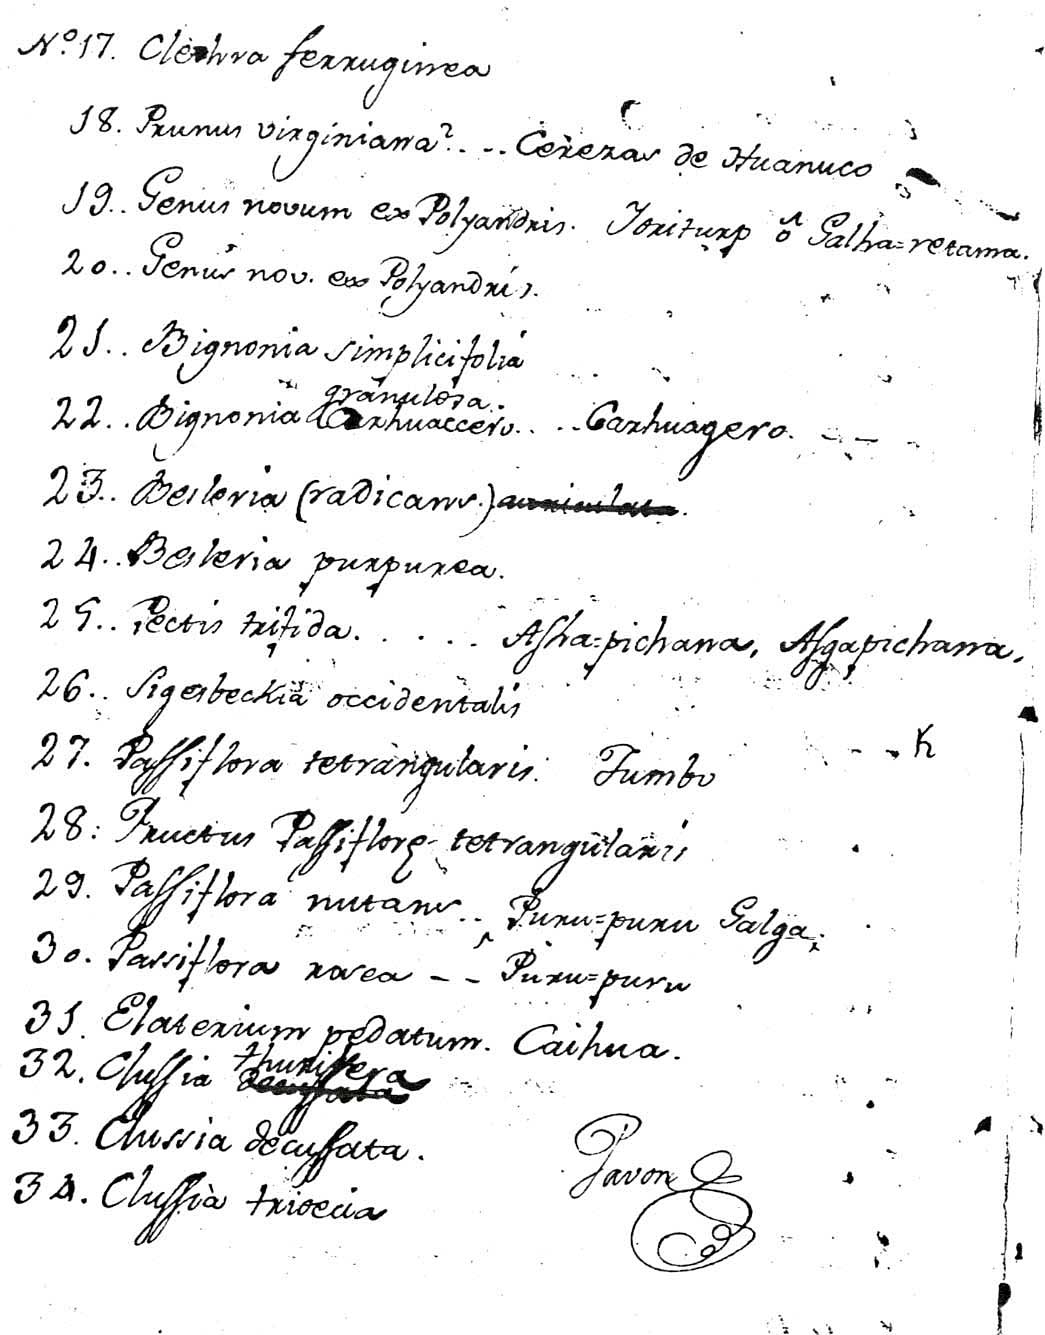 Nº 17. Clethra ferruginea
18. Prunus virginiana? . . . Cerezas de Huanuco
19. . Genus novum ex Polyandris. Toriturp ô Galha=retama.
20. . Genus nov. ex Polyandris.
21. . Bignonia simplicifolia
granulosa.
22. . Bignonia Carhuaccero. . . . Carhuagero.
23. . Besleria (radicans.) auriculata.
24. . Besleria purpurea.
25. . Pectis trifida. . . . . . Asha=pichana, Asgapichana.
26. . Sigesbeckia occidentalis
27. Passiflora tetrangularis. Tumbo
28. Fructus Passifloræ tetrangularis
29. Passiflora nutans. . Puru=puru Galga.
30. Passiflora rosea - - Puru=puru
31. Elaterium pedatum. Caihua.
thurifera
32. Clussia decussata
33. Clussia decussata.
34. Clussia trioecia
Pavon